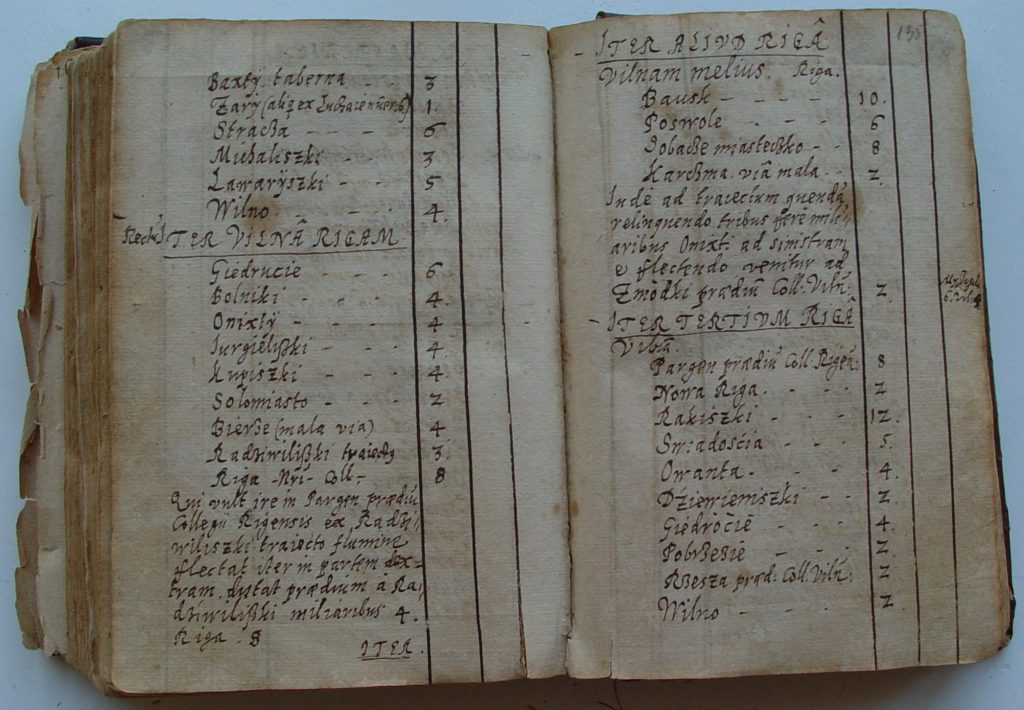 Baxty taberna 3
Zary (aliq ex 1.
Stracha - - - 6
Michaliszki - - 3
Lawaryszki - - - 5
Wilno. - - - 4.
ITER VILNÂ RIGAM
Giedrucie - - - 6
Bolniki - - - 4.
Onixty - - - 4
Iurgieliszki - - - 4.
Kupiszki - - - 4.
Solomiasto - - - 2
Bierże (mala via) 4
Radziwiliszki traiectq 3.
Riga Nri Coll. 8
Qui vult ire in Pargen prædiũ
Collegij Rigensis ex Radzi-
wiliszki traiecto flumine
flectat iter in partem dex-
tram, distat prædium à Ra-
dziwiliszki miliaribus 4.
Riga. 8
ITER.
135
ITER ALIVD RIGÂ
Vilnam melius. Riga.
Bausk - - - - 10.
Poswole - - - 6
miasteczko - - 8
Karczma. viâ mala. - - 2.
Inde ad traiectum quendã
relinquendo tribus ferè mili-
aribus Onixti ad sinistram
e flectendo venitur ad
Zmòdki prædiũ Coll. Viln: 2
ITER TERTIVM RIGÂ
Vilnã.
Pargen prædiũ Coll. Rigen: 8
Nowa Riga. - - - 2
Rakiszki - - - 12.
Swiadoscia - - - 5.
Owanta. - - - 4.
Dziewieniszki - - 2
Giedrocie - - - 4.
Pobrzezie - - - 2.
Rzesza præd: Coll. Viln: 2
Wilno - - - 2